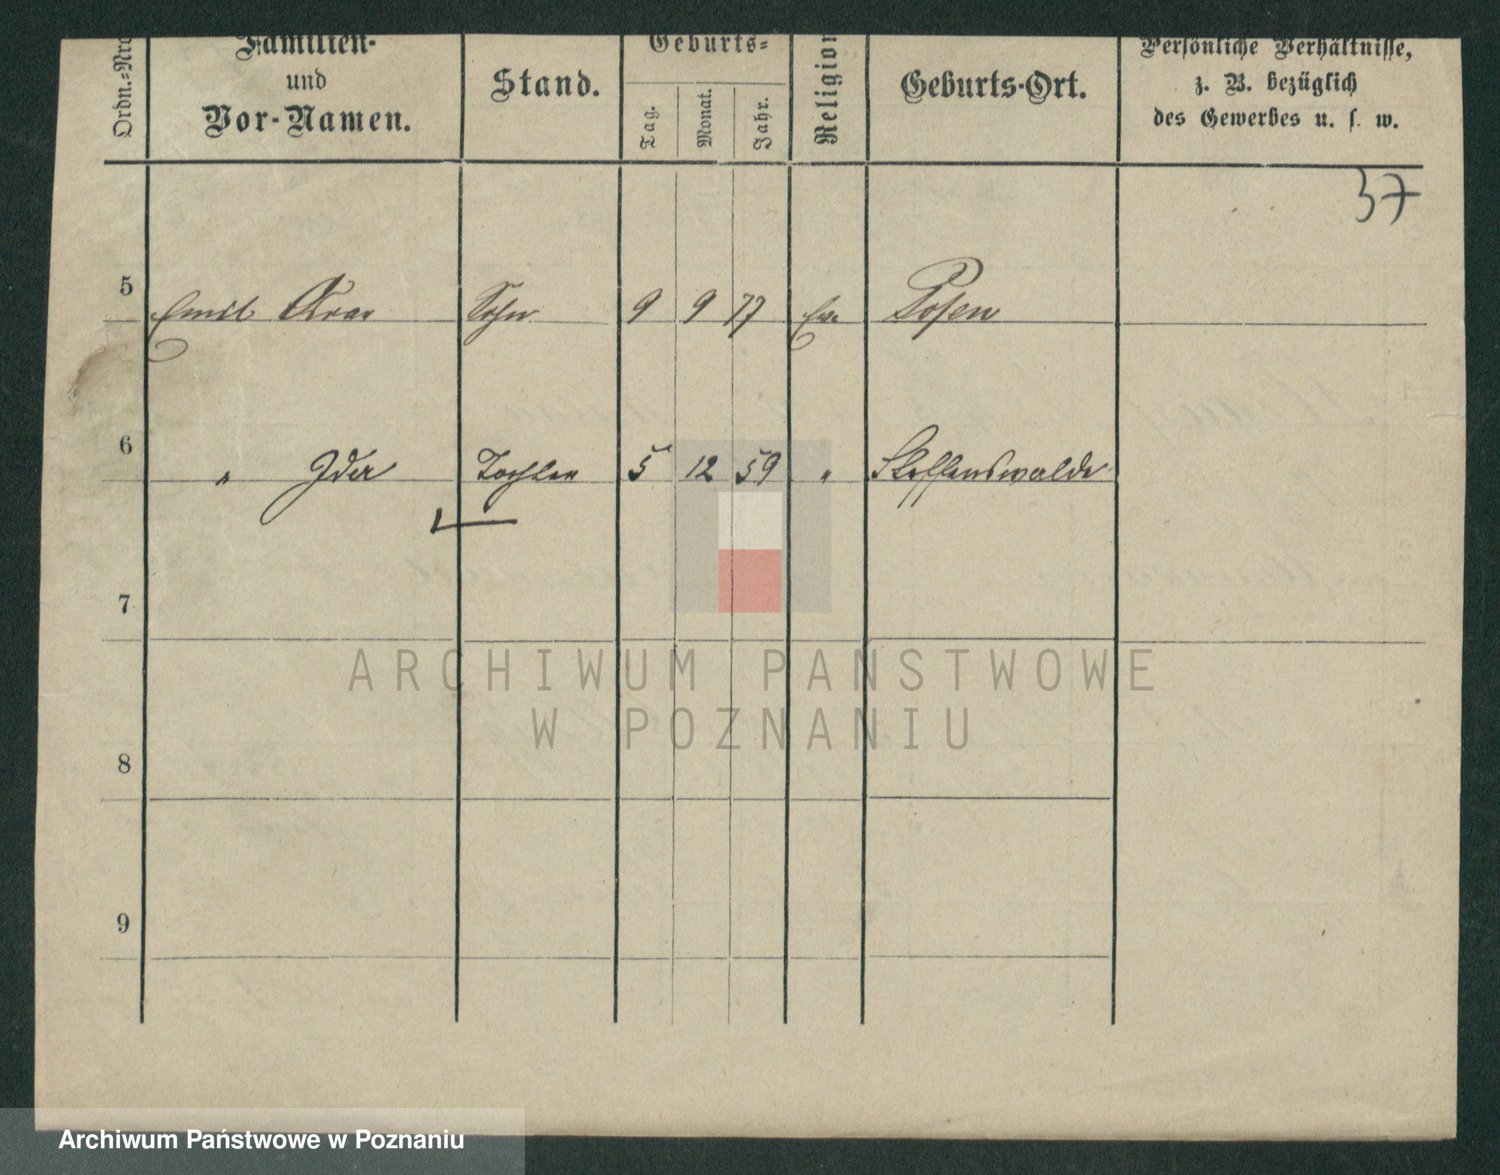 Ordn.-Nro
Familien-
und
Vor-Namen.
Stand.
Geburts-
Tag.
Monat.
Jahr.
Religion
Geburts-Ort.
Persönliche Verhältnisse,
z. B. bezüglich
des Gewerbes u. s. w.
37
5 Emil Sohn 9 9 77 Ev. Posen
6 " Ida Tochter 5 12 59 " Steffenswalde
7
ARCHIWUM PANSTWOWE
W POZNANIU
8
9
Archiwum Państwowe w Poznaniu